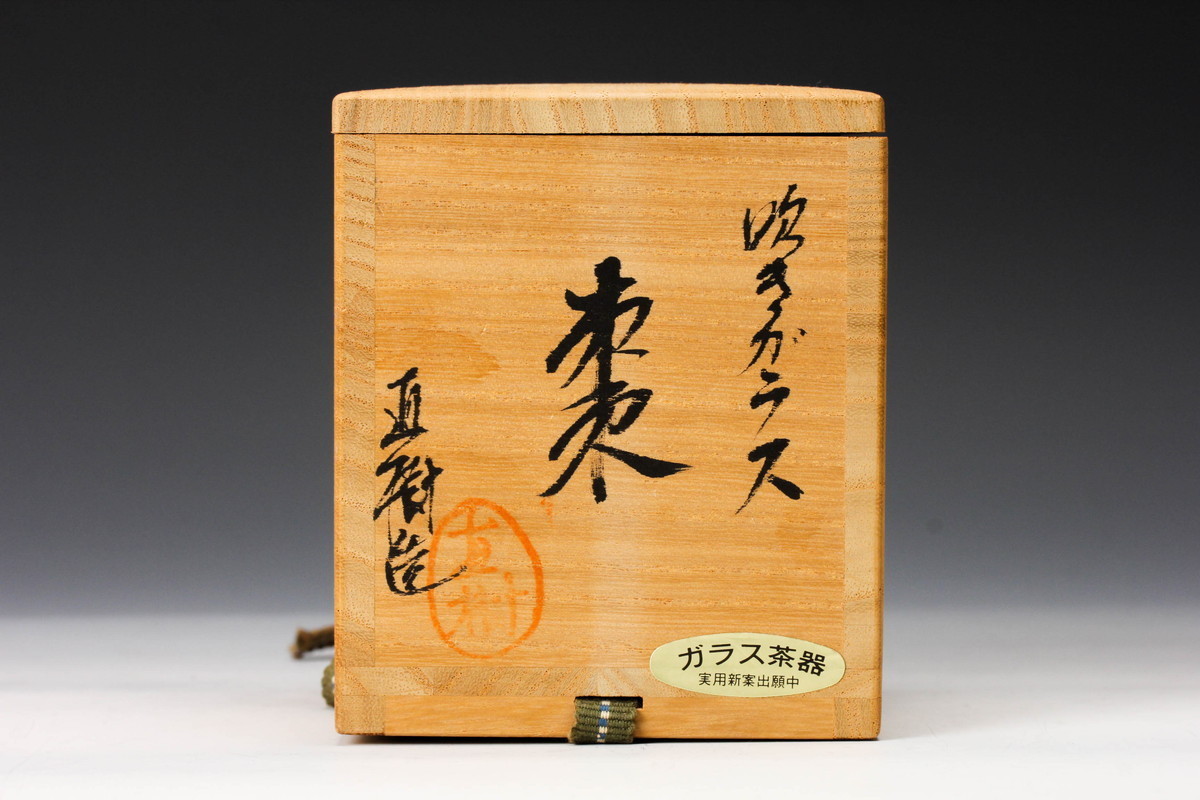 吹きガラス
棗
直樹造
直樹
ガラス茶器
実用新案出願中